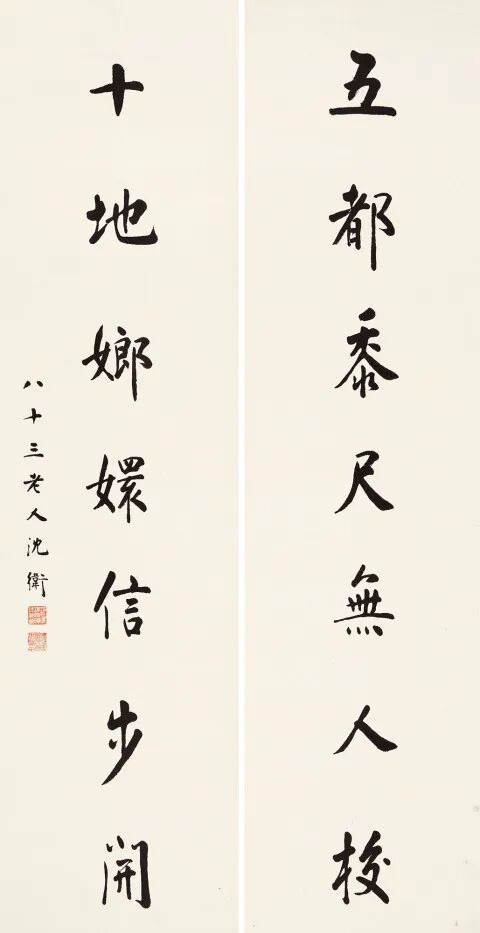 五都黍尺無人校
十地嫏嬛信步開
八十三老人沈衛